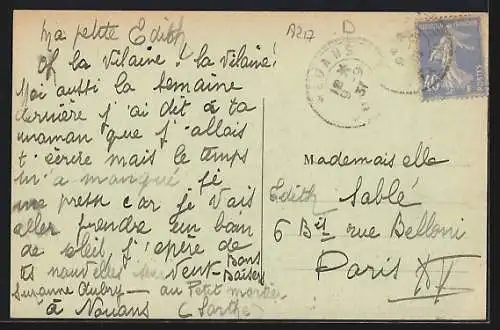 Ma petite Edith
Oh la vilaine! la vilaine!
Moi aussi la semaine
dernière j'ai dit à ta
maman que j'allais
t'écrire mais le temps
m'a manqué je
me presse car je vais
aller prendre un bain
de soleil, j'espere de
tes nouvelles Bons
Baisers
Suzanne au Petit
à Nouans (Sarthe)
A217
D
NOUANS
18
9-9
31
40
POSTES
Mademoiselle
Edith Sablé
6 Bis rue Belloni
Paris XV